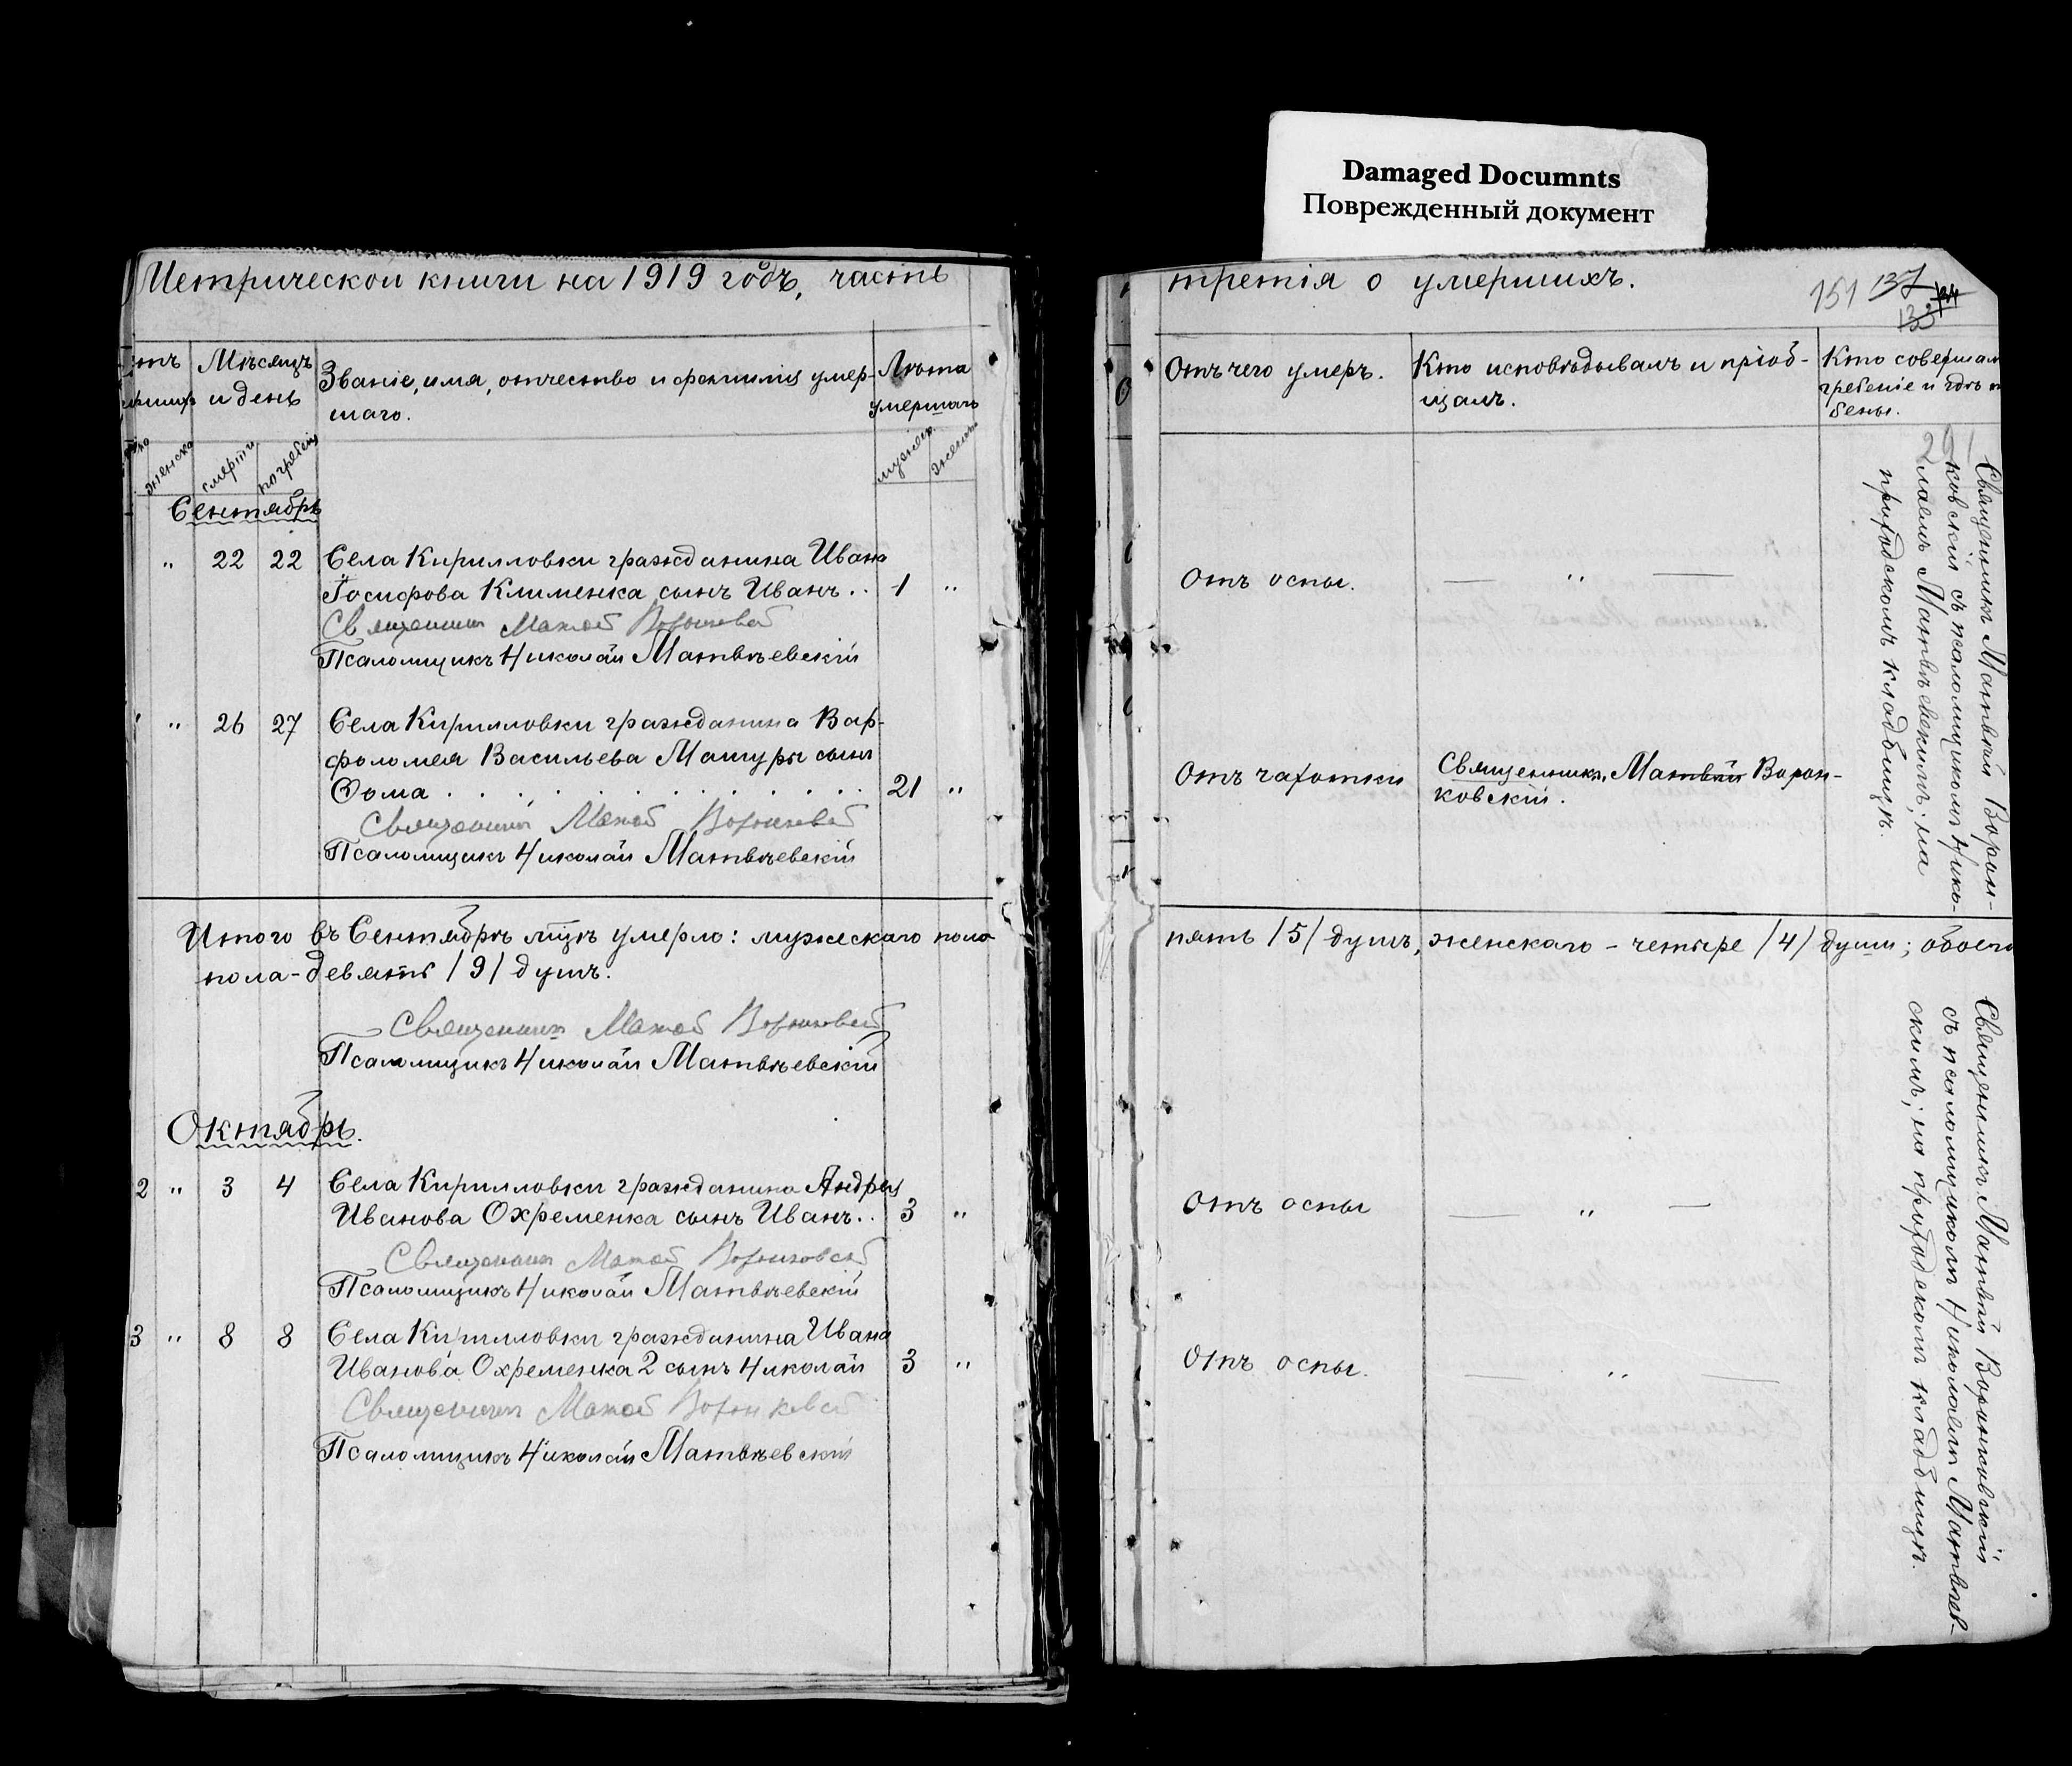 Damaged Documnts
Поврежденный документ
Метрической книги на 1919 годъ, часть
третія о умершихъ.
151 137
Мѣсяцъ
и день
Званіе, имя, отчество и фамилія умер-
шаго.
Лѣта
умершаго
Отъ чего умеръ.
Кто исповѣдывалъ и пріоб-
щалъ.
Кто совершал
гребеніе и гдѣ п
бены.
женска
смерти
погребенія
мужеск.
женск.
Сентябрь
" 22 22 Села Кирилловки гражданина Ивана
Іосифова Клименка сынъ Иванъ . . 1 "
Отъ оспы. — " —
Священникъ Матвѣй Воронковскій
Псаломщикъ Николай Матвѣевскій
" 26 27 Села Кирилловки гражданина Вар-
фоломея Васильева Мащуры сынъ
Ѳома . . . . . . . . . . . . 21 "
Отъ чахотки
Священникъ Матвѣй Ворон-
ковскій.
Священникъ Матвѣй Воронковскій
Псаломщикъ Николай Матвѣевскій
Священникъ Матвѣй Ворон-
ковскій съ псаломщикомъ Нико-
лаемъ Матвѣевскимъ; на
приходскомъ кладбищѣ.
Итого въ Сентябрѣ мцѣ умерло: мужескаго пола
пять /5/ душъ, женскаго - четыре /4/ души; обоего
пола - девять /9/ душъ.
Священникъ Матвѣй Воронковскій
Псаломщикъ Николай Матвѣевскій
Октябрь.
2 " 3 4 Села Кирилловки гражданина Андрея
Иванова Охременка сынъ Иванъ . . 3 "
Отъ оспы — " —
Священникъ Матвѣй Воронковскій
Псаломщикъ Николай Матвѣевскій
3 " 8 8 Села Кирилловки гражданина Ивана
Иванова Охременка 2 сынъ Николай 3 "
Отъ оспы. — " —
Священникъ Матвѣй Воронковскій
Псаломщикъ Николай Матвѣевскій
Священникъ Матвѣй Воронковскій
съ псаломщикомъ Николаемъ Матвѣев-
скимъ; на приходскомъ кладбищѣ.